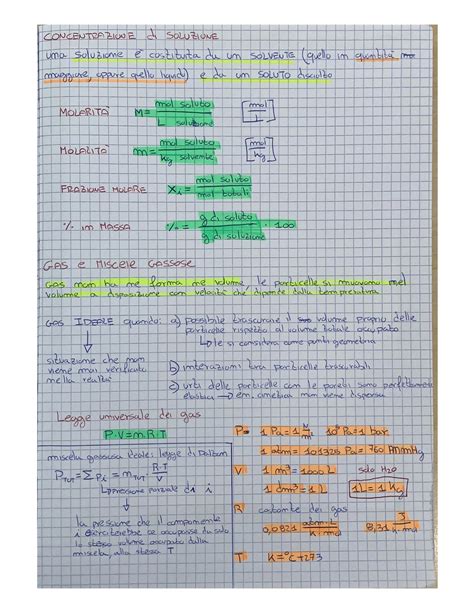 CONCENTRAZIONE di SOLUZIONE
una soluzione è costituita da un SOLVENTE (quello in quantità
maggiore, oppure quello liquido) e da un SOLUTO disciolto
MOLARITÀ M = mol soluto / L soluzione [mol / L]
MOLALITÀ m = mol soluto / kg solvente [mol / kg]
FRAZIONE MOLARE Xi = mol soluto / mol totali
% in MASSA % = g di soluto / g di soluzione · 100
GAS e MISCELE GASSOSE
GAS non ha né forma né volume, le particelle si muovono nel
volume a disposizione con velocità che dipende dalla temperatura
GAS IDEALE quando: a) possibile trascurare il volume proprio delle
particelle rispetto al volume totale occupato
↳ le si considera come punti geometrici
situazione che non
viene mai verificata
nella realtà
b) interazioni tra particelle trascurabili
c) urti delle particelle con le pareti sono perfettamente
elastici → en. cinetica non viene dispersa
Legge universale dei gas
P·V=n·R·T
P= 1 Pa = 1 N/m² 10⁵ Pa = 1 bar
1 atm = 101325 Pa = 760 mmHg
V 1 m³ = 1000 L solo H2O
1 dm³ = 1 L 1L = 1 kg
R costante dei gas
0,0821 atm·L / K·mol 8,31 J / K·mol
T K = °C + 273
miscela gassosa ideale: legge di Dalton
PTOT = Σ Pi = nTOT R·T / V
↳ pressione parziale di i
la pressione che il componente
i eserciterebbe se occupasse da solo
lo stesso volume occupato dalla
miscela, alla stessa T